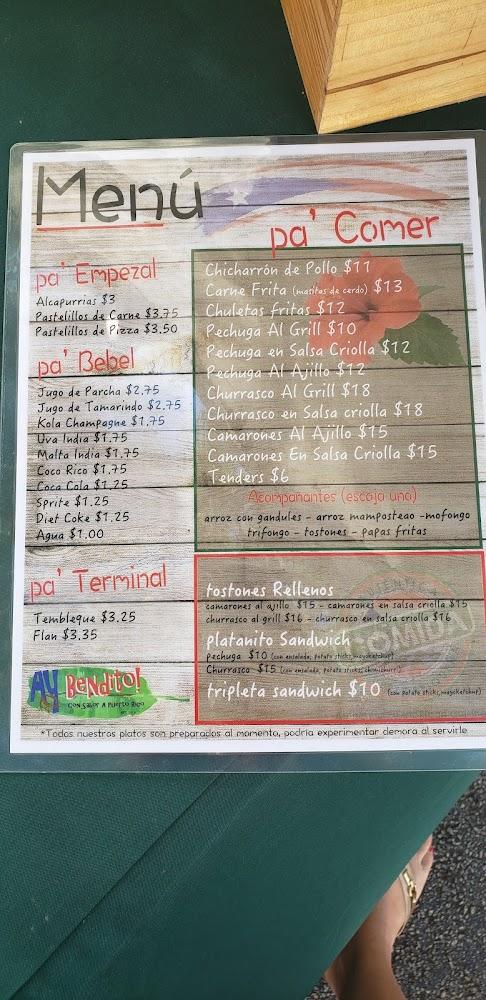 Menú
pa' Empezal
Alcapurrias $3
Pastelillos de Carne $3.75
Pastelillos de Pizza $3.50
pa' Bebel
Jugo de Parcha $2.75
Jugo de Tamarindo $2.75
Kola Champagne $1.75
Uva India $1.75
Malta India $1.75
Coco Rico $1.75
Coca Cola $1.25
Sprite $1.25
Diet Coke $1.25
Agua $1.00
pa' Terminal
Tembleque $3.25
Flan $3.35
AY BENDITO!
CON SABOR A PUERTO RICO
pa' Comer
Chicharrón de Pollo $11
Carne Frita (masitas de cerdo) $13
Chuletas fritas $12
Pechuga Al Grill $10
Pechuga en Salsa Criolla $12
Pechuga Al Ajillo $12
Churrasco Al Grill $18
Churrasco en Salsa criolla $18
Camarones Al Ajillo $15
Camarones En Salsa Criolla $15
Tenders $6
Acompañantes (escoja uno)
arroz con gandules - arroz mamposteao - mofongo
trifongo - tostones - papas fritas
tostones Rellenos
camarones al ajillo $15 - camarones en salsa criolla $15
churrasco al grill $16 - churrasco en salsa criolla $16
platanito Sandwich
Pechuga $10 (con ensalada, potato sticks, mayoketchup)
Churrasco $15 (con ensalada, potato sticks, chimichurri)
tripleta sandwich $10 (con potato sticks, mayoketchup)
COMIDA
*Todos nuestros platos son preparados al momento, podría experimentar demora al servirle